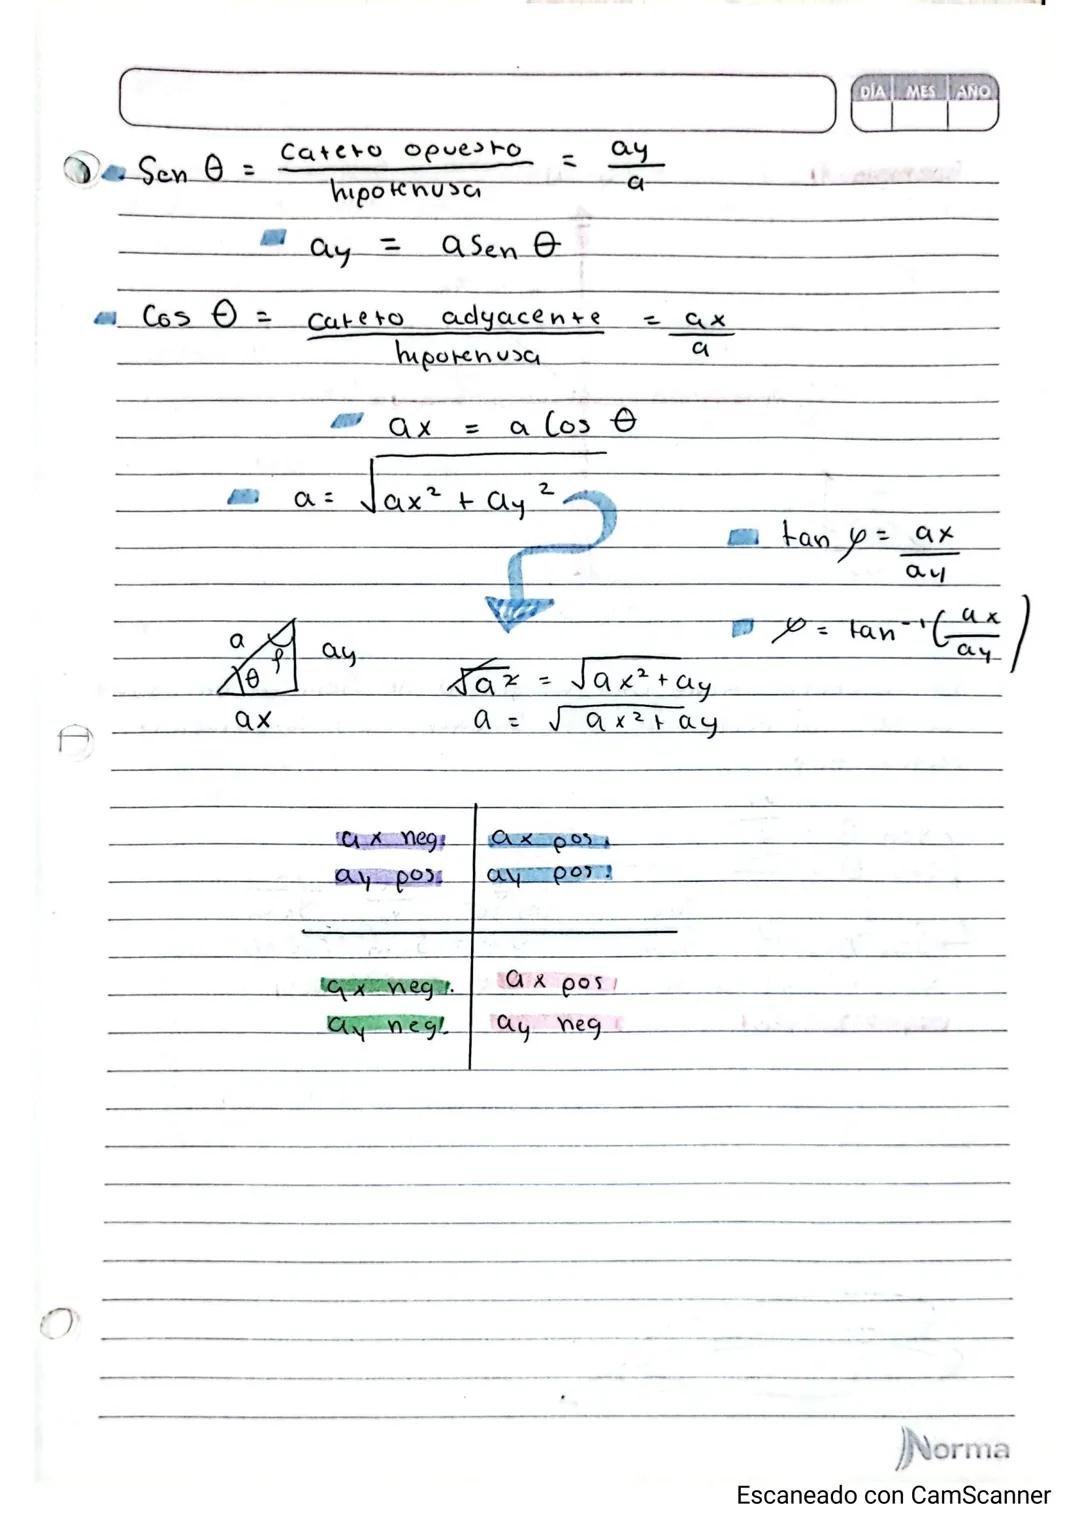 DÍA MES AÑO
Sen θ = catero opuesto / hipotenusa = ay / a
ay = a Sen θ
Cos θ = cateto adyacente / hipotenusa = ax / a
ax = a Cos θ
a = √ax² + ay²
tan φ = ax / ay
φ = tan⁻¹(ax / ay)
a θ φ ay
ax
√a² = √ax² + ay
a = √ax² + ay
ax neg. ax pos.
ay pos. ay pos.
ax neg. ax pos
ay neg. ay neg
Norma
Escaneado con CamScanner